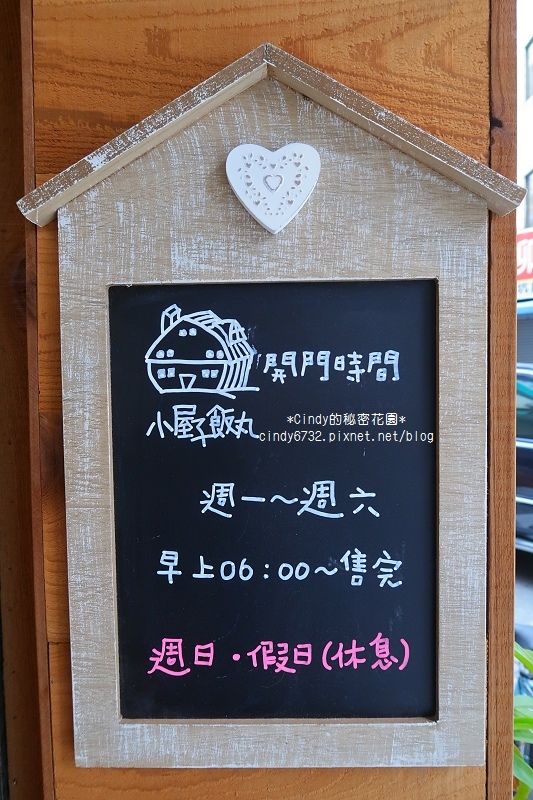 開門時間
小屋飯丸
*Cindy的秘密花園*
cindy6732.pixnet.net/blog
週一～週六
早上06:00～售完
週日・假日(休息)